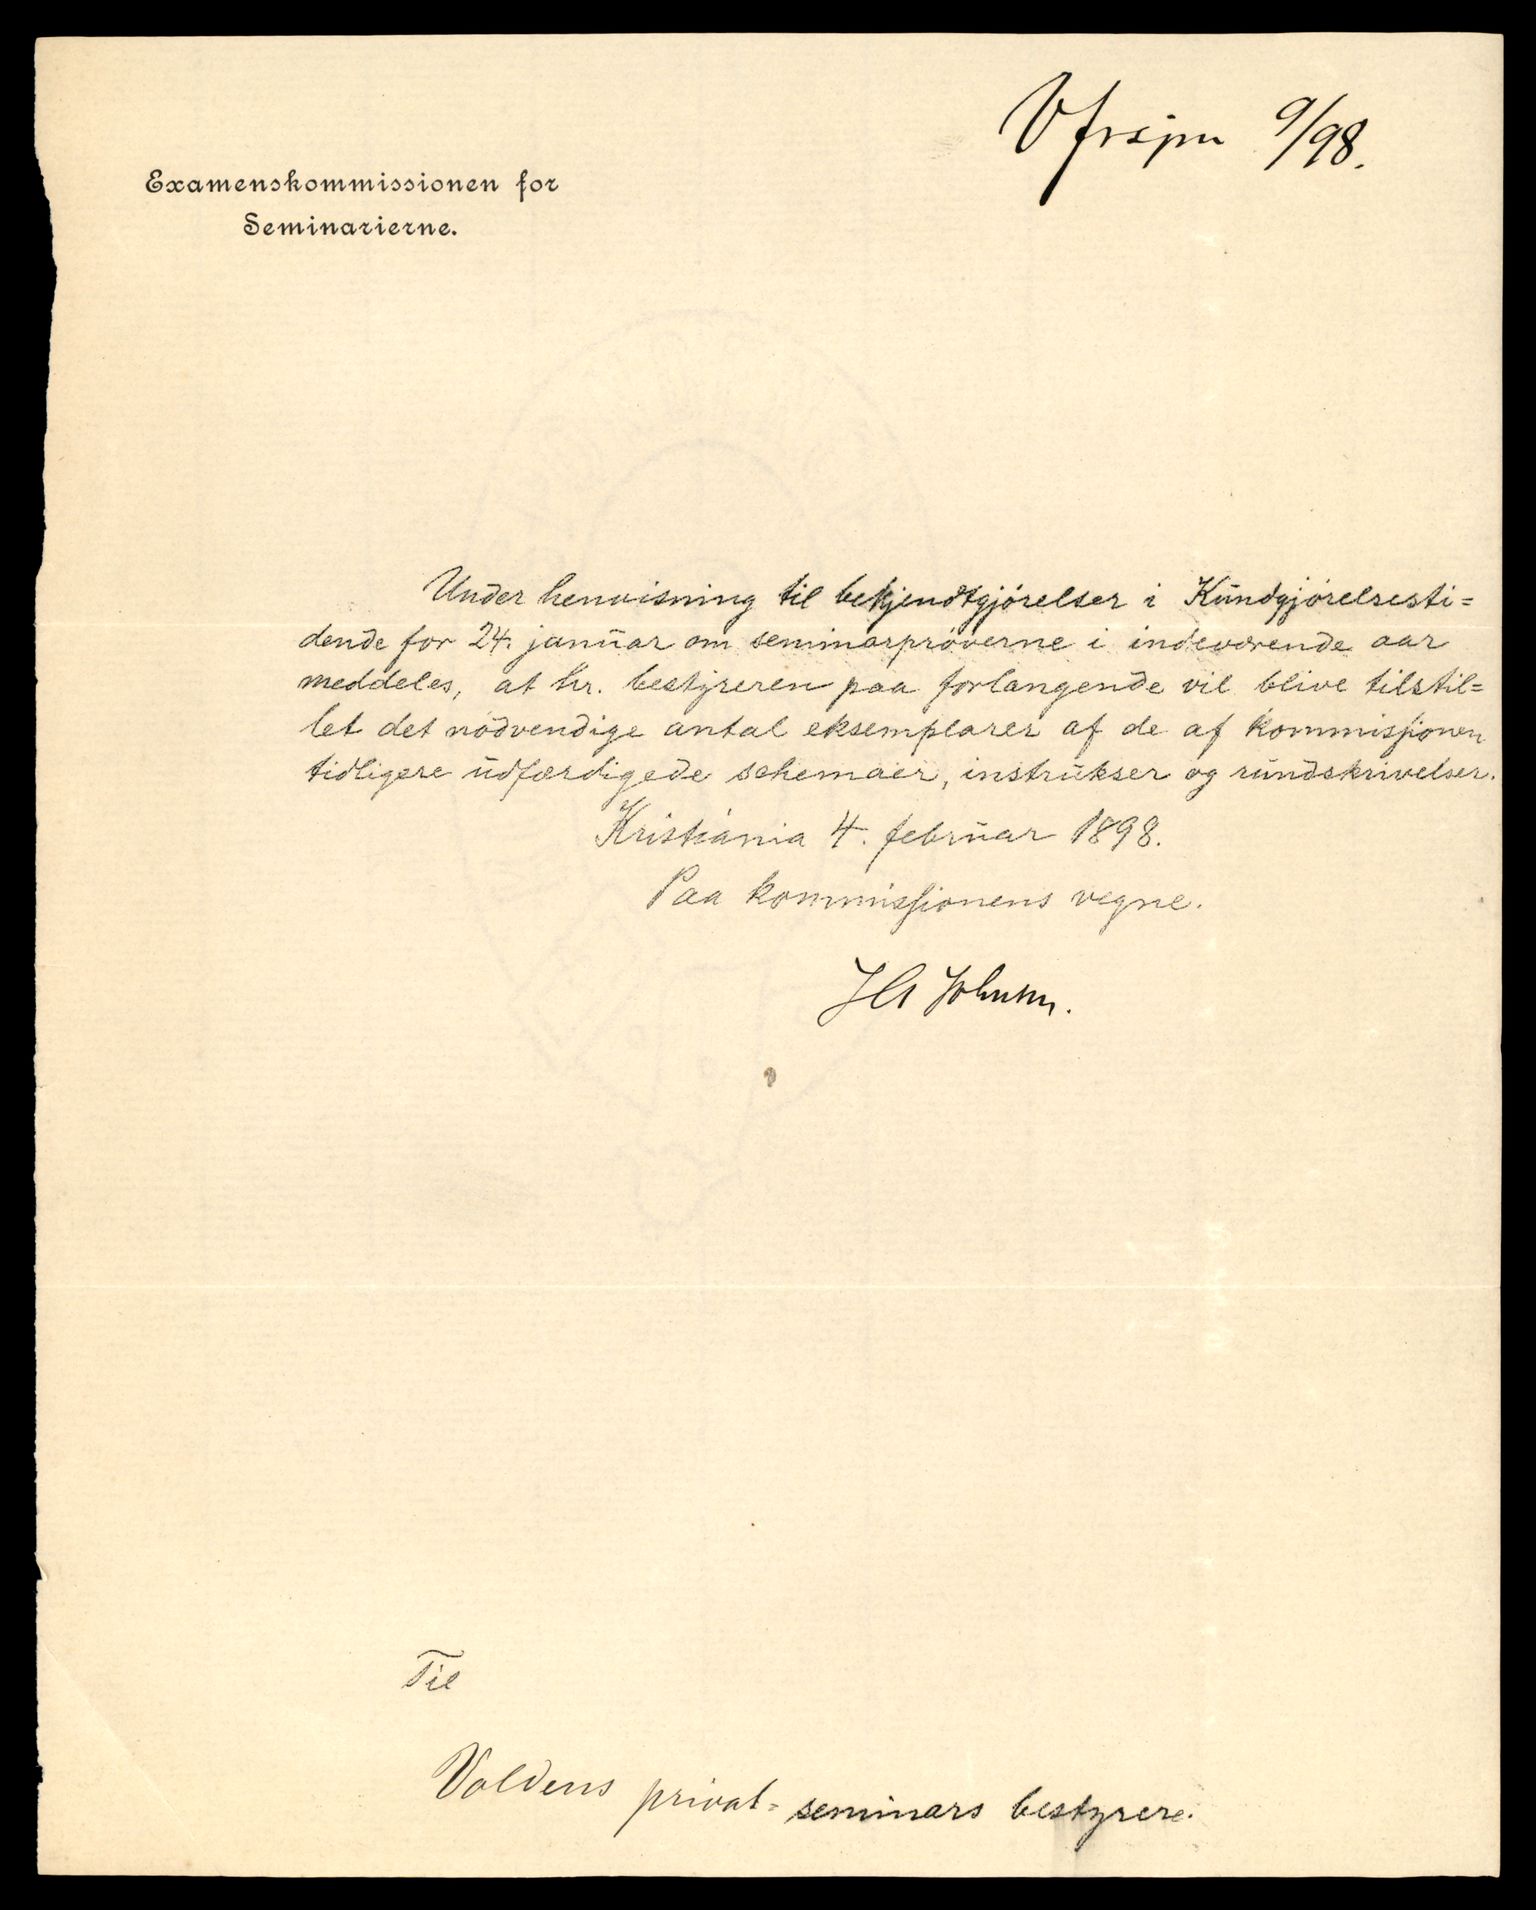 9/98.
Examenskommissionen for
Seminarierne.
Under henvisning til bekjendtgjörelser i Kundgjörelsesti=
dende for 24. januar om seminarpröverne i indeværende aar
meddeles, at hr. bestyreren paa forlangende vil blive tilstil=
let det nödvendige antal eksemplarer af de af kommissionen
tidligere udfærdigede schemaer, instrukser og rundskrivelser.
Kristiania 4. februar 1898.
Paa kommissionens vegne.
Johnson.
Til
Voldens privat= seminars bestyrere.